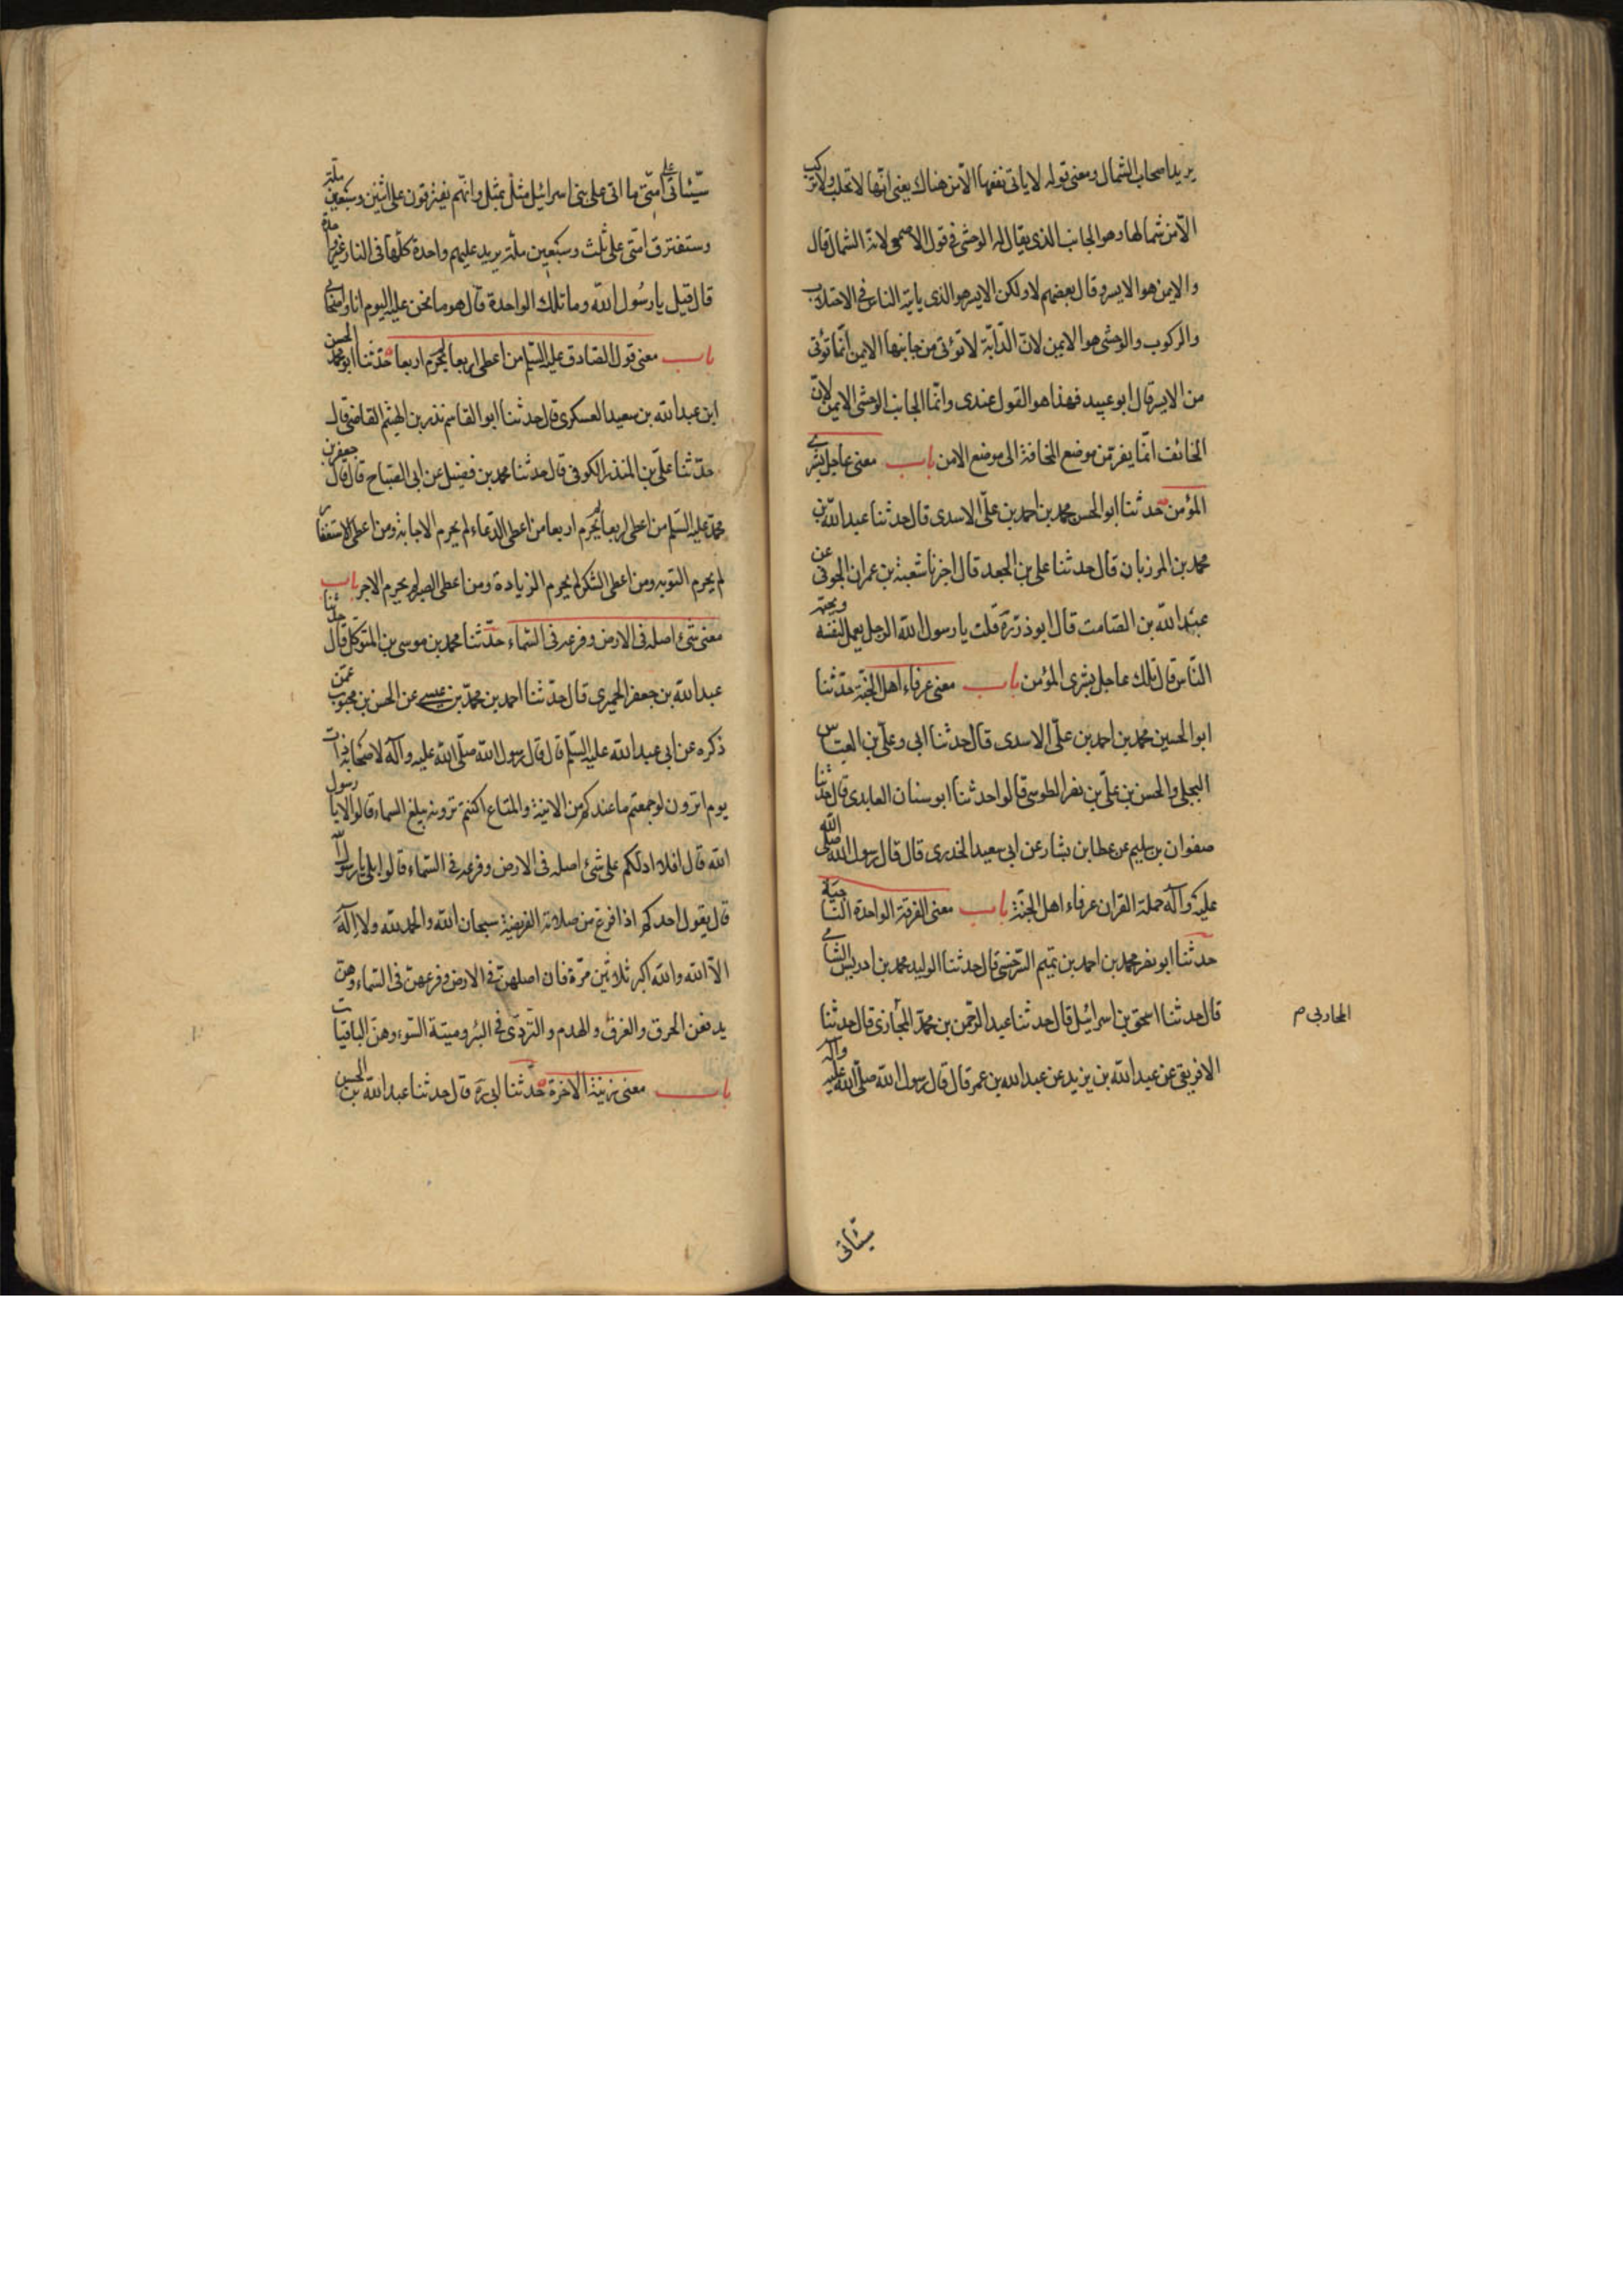 يريد اصحاب الشمال ومعنى قوله لا ياتى نفعها الا من هناك يعنى انها لا تحلب ولا تركب
الا من شمالها وهو الجانب الذى يقال له الوحشى فى قول الاصمعى لانه الشمال قال
والايمن هو الايسر وقال بعضهم لا ولكن الايسر هو الذى ياتيه الناس فى الاحتلاب
والركوب والوحشى هو الايمن لان الدّابّة لا تؤتى من جانبها الايمن انّما تؤتى
من الايسر قال ابو عبيد فهذا هو القول عندى وانّما الجانب الوحشى الايمن لانّ
الخائف انّما يفر من موضع المخافة الى موضع الامن باب معنى عاجل بشرى
المؤمن حدثنا ابو الحسن محمد بن احمد بن علىّ الاسدى قال حدثنا عبد الله بن
محمد بن المرزبان قال حدثنا على بن الجعد قال اخبرنا شعبة بن عمران الجوفى عن
عبد الله بن الصّامت قال ابو ذر ره قلت يا رسول الله الرجل يعمل لنفسه ويحبه
النّاس قال تلك عاجل بشرى المؤمن باب معنى عرفاء اهل الجنّة حدّثنا
ابو الحسين محمد بن احمد بن علىّ الاسدى قال حدثنا ابى وعلى بن العبّاس
البجلى والحسن بن علىّ بن نصر الطوسى قالوا حدثنا ابو سنان العابدى قال حدثنا
صفوان بن سليم عن عطا بن بشار عن ابى سعيد الخدرى قال قال رسول الله صلى الله
عليه وآله حملة القران عرفاء اهل الجنّة باب معنى الفرقة الواحدة النّاجية
حدثنا ابو نصر محمد بن احمد بن تميم السّرخسى قال حدثنا الوليد محمد بن ادريس الشامى
قال حدثنا اسحق بن اسرائيل قال حدثنا عبد الرّحمن بن محمّد المجازى قال حدثنا
المحاربى م
الافريقى عن عبد الله بن يزيد عن عبد الله بن عمر قال قال رسول الله صلّى الله عليه وآله
سيئاتى
سيّئاتى على امّتى ما اتى على بنى اسرائيل مثل بمثل وانّهم يفترقون على اثنين وسبعين ملّة
وستفترق امّتى على ثلث وسبعين ملّة يريد عليهم واحدة كلّها فى النار غير واحدة
قال قيل يا رسول الله وما تلك الواحدة قال هو ما نحن عليه اليوم انا واصحابى
باب معنى قول الصّادق عليه السّلم من اعطى اربعا لم يحرم اربعا حدّثنا ابو محمد الحسن
ابن عبد الله بن سعيد العسكرى قال حدثنا ابو القاسم نذر بن الهيثم القاضى قال
حدّثنا علىّ بن المنذر الكوفى قال حدثنا محمد بن فضيل عن ابى الصّباح قال قال جعفر بن
محمّد عليه السّلم من اعطى اربعا لم يحرم اربعا من اعطى الدّعاء لم يحرم الاجابة ومن اعطى الاستغفار
لم يحرم التوبه ومن اعطى الشكر لم يحرم الزيادة ومن اعطى الصبر لم يحرم الاجر باب
معنى شئ اصله فى الارض وفرعه فى السّماء حدّثنا محمد بن موسى بن المتوكل قال حدثنا
عبد الله بن جعفر الحميرى قال حدّثنا احمد بن محمّد بن عيسى عن الحسن بن محبوب عمّن
ذكره عن ابى عبد الله عليه السّلم قال قال رسول الله صلّى الله عليه وآله لاصحابه ذات
يوم اترون لو جمعتم ما عندكم من الانية والمتاع اكنتم ترونه يبلغ السماء قالوا لا يا رسول
الله قال افلا ادلكم على شئ اصله فى الارض وفرعه فى السّماء قالوا بلى يا رسول الله
قال يقول احدكم اذا فرغ من صلاته الفريضة سبحان الله والحمد لله ولا اله
الاّ الله والله اكبر ثلاثين مرّة فان اصلهنّ فى الارض وفرعهنّ فى السّماء وهن
يدفعن الحرق والغرق والهدم والتّردّى فى البئر وميتة السّوء وهنّ الباقيات
باب معنى زينة الاخرة حدّثنا ابى ره قال حدثنا عبد الله بن الحسن